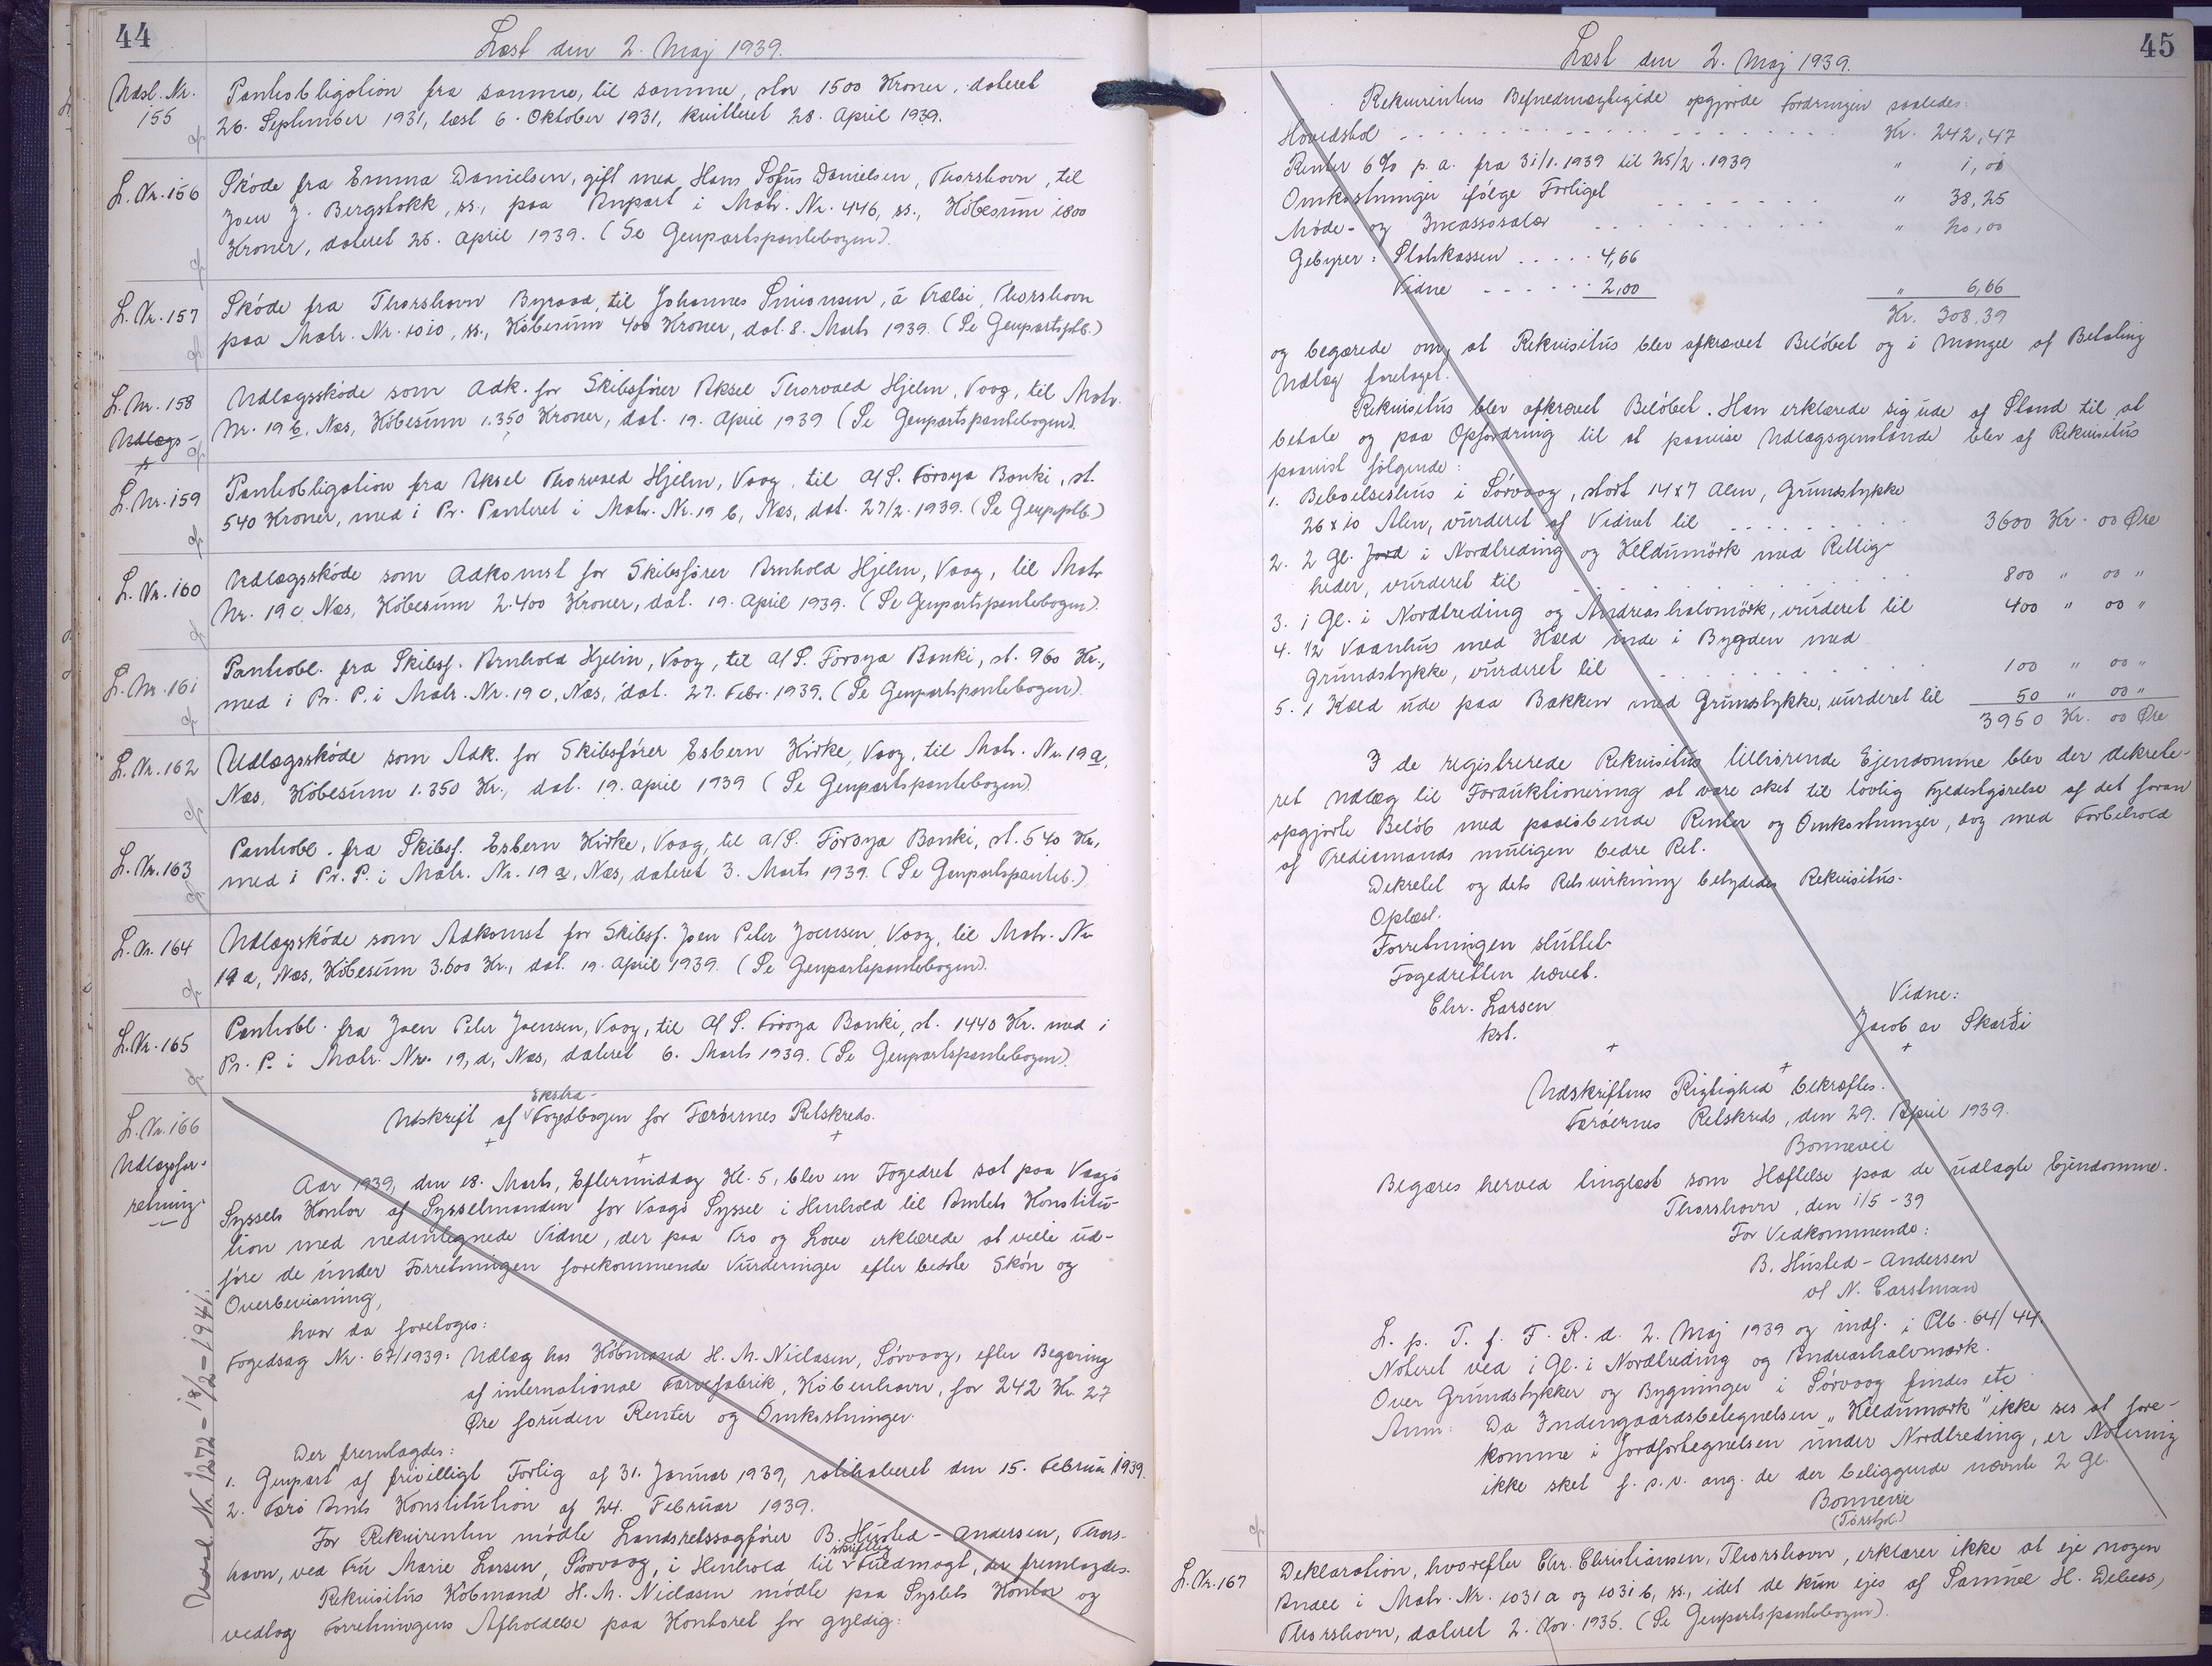 44
Læst den 2. Maj 1939.
Udsl. Nr. 155
Pantobligation fra samme, til samme, stor 1500 Kroner, dateret
26. September 1931, læst 6. Oktober 1931, kvitteret 28. April 1939.
L. Nr. 156
Skøde fra Emma Danielsen, gift med Hans Sofus Danielsen, Thorshavn, til
Joen J. Bergstokk, ss., paa Anpart i Matr. Nr. 446, ss., Købesum 1800
Kroner, dateret 25. April 1939. (Se Genpartspantebogen).
L. Nr. 157
Skøde fra Thorshavn Byraad, til Johannes Simonsen, á Trælsi, Thorshavn
paa Matr. Nr. 1010, ss., Købesum 400 Kroner, dat. 8. Marts 1939. (Se Genpartsptb.)
L. Nr. 158
Udlægs-
Udlægsskøde som Adk. for Skibsfører Aksel Thorvald Hjelm, Vaag, til Matr.
Nr. 19 b, Næs, Købesum 1.350 Kroner, dat. 19. April 1939 (Se Genpartspantebogen).
L. Nr. 159
Pantobligation fra Aksel Thorvald Hjelm, Vaag, til A/S. Føroya Banki, st.
540 Kroner, med 1 Pr. Panteret i Matr. Nr. 19 b, Næs, dat. 27/2. 1939. (Se Genpptb.)
L. Nr. 160
Udlægsskøde som Adkomst for Skibsfører Arnhold Hjelm, Vaag, til Matr
Nr. 19 c Næs, Købesum 2.400 Kroner, dat. 19. April 1939. (Se Genpartspantebogen).
L. Nr. 161
Pantobl. fra Skibsf. Arnhold Hjelm, Vaag, til A/S. Føroya Banki, st. 960 Kr.,
med 1 Pr. P. i Matr. Nr. 19 c, Næs, dat. 27. Febr. 1939. (Se Genpartspantebogen).
L. Nr. 162
Udlægsskøde som Adk. for Skibsfører Esbern Kirke, Vaag, til Matr. Nr. 19 a,
Næs, Købesum 1.350 Kr., dat. 19. April 1939 (Se Genpartspantebogen)
L. Nr. 163
Pantobl. fra Skibsf. Esbern Kirke, Vaag, til A/S. Føroya Banki, st. 540 Kr.,
med 1 Pr. P. i Matr. Nr. 19 a, Næs, dateret 3. Marts 1939. (Se Genpartspanteb.)
L. Nr. 164
Udlægsskøde som Adkomst for Skibsf. Joen Peter Joensen, Vaag, til Matr. Nr
19 a, Næs, Købesum 3.600 Kr., dat. 19. April 1939. (Se Genpartspantebogen).
L. Nr. 165
Pantobl. fra Joen Peter Joensen, Vaag, til A/S. Føroya Banki, st. 1440 Kr. med 1
Pr. P. i Matr. Nr. 19, d, Næs, dateret 6. Marts 1939. (Se Genpartspantebogen).
L. Nr. 166
Udlægsfor-
retning.
Ekstra-
Udskrift af Fogedbogen for Færøernes Retskreds.
Aar 1939, den 18. Marts, Eftermiddag Kl. 5, blev en Fogedret sat paa Vaagø
Syssels Kontor af Sysselmanden for Vaagø Syssel i Henhold til Amtets Konstitu-
tion med nedentegnede Vidne, der paa Tro og Love erklærede at ville ud-
føre de under Forretningen forekommende Vurderinger efter bedste Skøn og
Overbevisning,
hvor da foretoges:
Fogedsag Nr. 67/1939: Udlæg hos Købmand H. M. Niclasen, Sørvaag, efter Begæring
af international Farvefabrik, København, for 242 Kr. 27
Øre foruden Renter og Omkostninger.
Der fremlagdes:
1. Genpart af frivilligt Forlig af 31. Januar 1939, ratihaberet den 15. Februar 1939.
2. Færø Amts Konstitution af 24. Februar 1939.
For Rekvirenten mødte Landsretssagfører B. Husted-Andersen, Thors-
skriftlig
havn, ved Fru Marie Larsen, Sørvaag, i Henhold til Fuldmagt, der fremlagdes.
Rekvisitus Købmand H. M. Niclasen mødte paa Syslets Kontor og
vedtog Forretningens Afholdelse paa Kontoret for gyldig:
Udsl. Nr. 1272 = 18/2 = 1941.
45
Læst den 2. Maj 1939.
Rekvirentens Befuldmægtigede opgjorde Fordringen saaledes:
Hovedstol Kr. 242,47
Renter 6% p. a. fra 31/1. 1939 til 25/2. 1939 " 1,00
Omkostninger ifølge Forliget " 38,25
Møde- og Incassosalær " 20,00
Gebyrer: Statskassen 4,66
Vidne 2,00 " 6,66
Kr. 308,39
og begærede om, at Rekvisitus blev afkrævet Beløbet og i Mangel af Betaling
Udlæg foretaget.
Rekvisitus blev afkrævet Beløbet. Han erklærede sig ude af Stand til at
betale og paa Opfordring til at paavise Udlægsgenstande blev af Rekvisitus
paavist følgende:
1. Beboelseshus i Sørvaag, stort 14x7 Alen, Grundstykke
26 x 10 Alen, vurderet af Vidnet til 3600 Kr. 00 Øre
2. 2 Gl. Jord i Nordtreding og Keldumørk med Rettig-
heder, vurderet til 800 " 00 "
3. 1 Gl. i Nordtreding og Andreashalvmørk, vurderet til 400 " 00 "
4. 1/2 Vaanhus med Kæld inde i Bygden med
Grundstykke, vurderet til 100 " 00 "
5. 1 Kæld ude paa Bakken med Grundstykke, vurderet til 50 " 00 "
3950 Kr. 00 Øre
I de registrerede Rekvisitus tilhørende Ejendomme blev der dekrete-
ret Udlæg til Forauktionering at være sket til lovlig Fyldestgørelse af det foran
opgjorte Beløb med paaløbende Renter og Omkostninger, dog med Forbehold
af Trediemands muligen bedre Ret.
Dekretet og dets Retsvirkning betydedes Rekvisitus.
Oplæst.
Forretningen sluttet.
Fogedretten hævet.
Chr. Larsen
kst.
Vidne:
Jacob av Skarði
Udskriftens Rigtighed bekræftes.
Færøernes Retskreds, den 29. April 1939.
Bonnevie
Begæres herved tinglæst som Hæftelse paa de udlagte Ejendomme.
Thorshavn, den 1/5 - 39
For Vedkommende:
B. Husted-Andersen
v/ N. Carstman
L. p. T. f. F. R. d. 2. Maj 1939 og indf. i Ptb. 64/44.
Noteret ved 1 Gl. i Nordtreding og Andreashalvmørk.
Over Grundstykker og Bygninger i Sørvaag findes etc
Anm: Da Indengaardsbetegnelsen „Keldumørk" ikke ses at fore-
komme i Jordfortegnelsen under Nordtreding, er Notering
ikke sket f. s. v. ang. de der beliggende nævnte 2 Gl.
Bonnevie
(Tórshd.)
L. Nr. 167
Deklaration, hvorefter Chr. Christiansen, Thorshavn, erklærer ikke at eje nogen
Andel i Matr. Nr. 1031 a og 1031 b, ss., idet de kun ejes af Samuel H. Debess,
Thorshavn, dateret 2. Nov. 1935. (Se Genpartspantebogen).